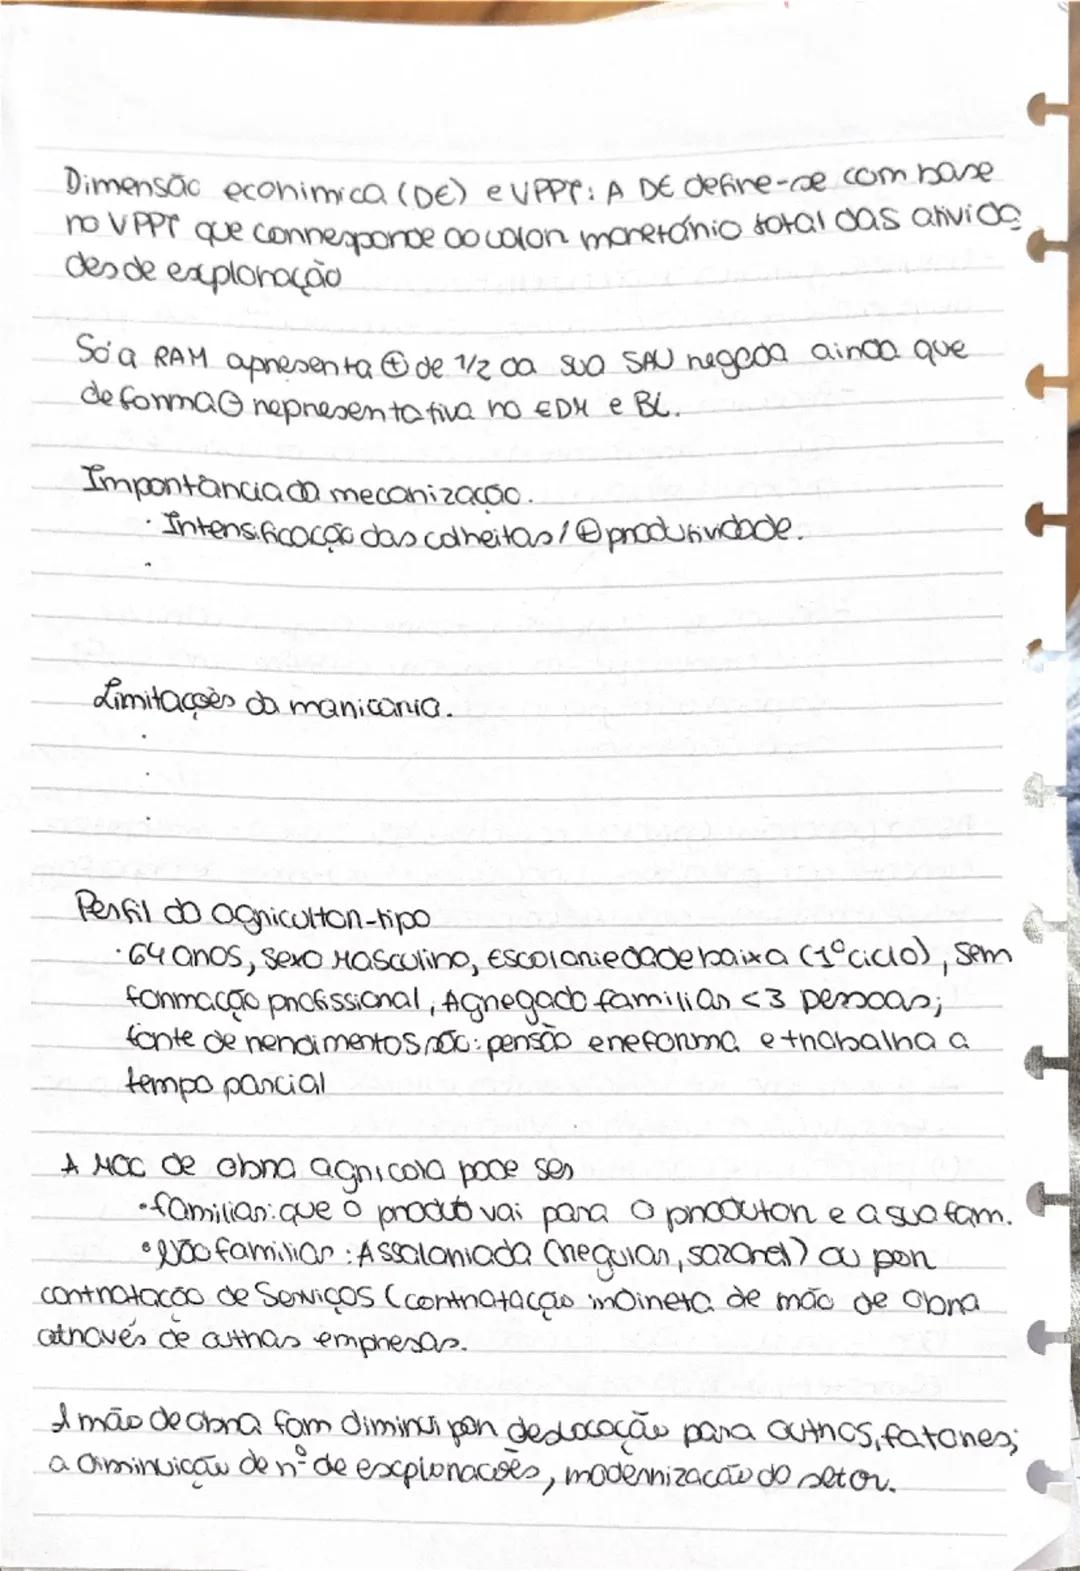 Dimensão econimica (DE) e VPPT: A DE define-se com base
no VPPT que corresponde ao valor monetário total das ativida
des de exploração
Só a RAM apresenta ⊕ de 1/2 da sua SAU regada ainda que
de forma ⊖ representativa no EDM e BL.
Importância da mecanização.
· Intensificação das colheitas / ⊕ produtividade.
·
Limitações da maricaria.
·
·
·
Perfil do agricultor-tipo
· 64 anos, Sexo Masculino, Escolariedade baixa (1º ciclo), Sem
formação profissional, Agregado familiar <3 pessoas;
fonte de rendimentos são: pensão e reforma e trabalha a
tempo parcial
A MOC de obra agricola pode ser
• familiar: que o produto vai para o produtor e a sua fam.
• Não familiar: Assalariada (regular, sazonal) ou por
contratação de Serviços (contratação indireta de mão de obra
através de outras empresas.
A mão de obra fam diminui por deslocação para outros, fatores;
a diminuição de nº de explorações, modernização do setor.